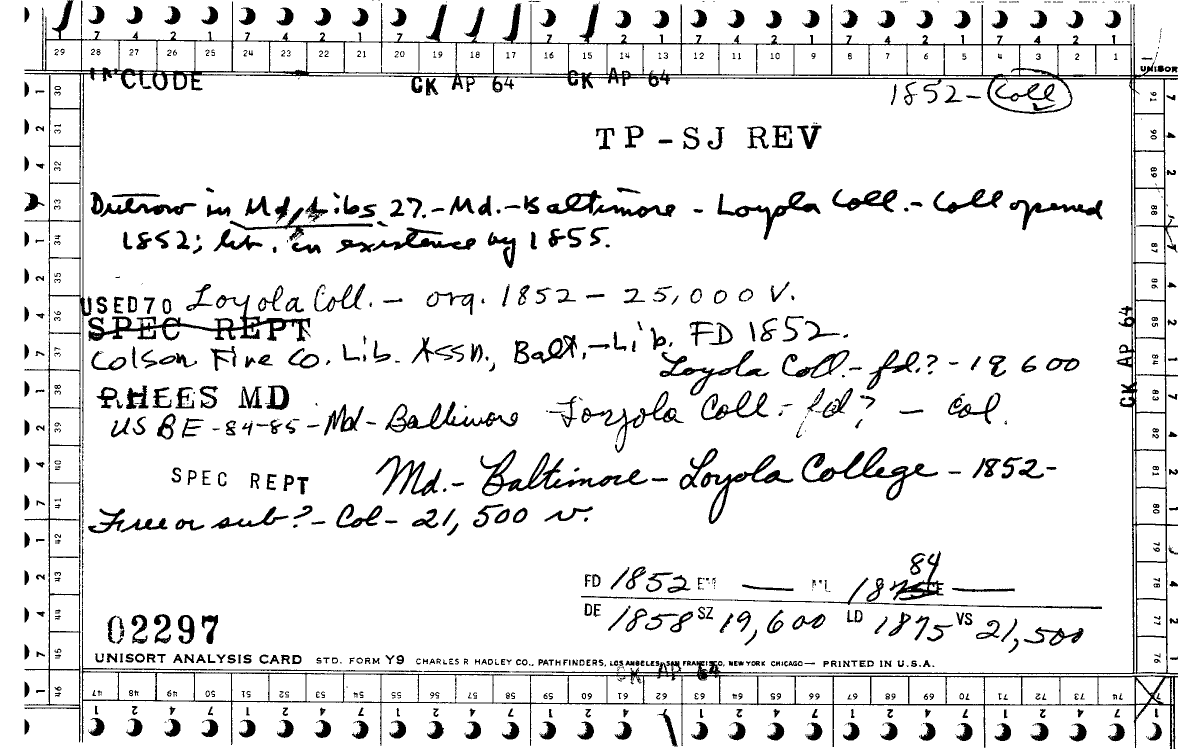 7 4 2 1 7 4 2 1 7 4 2 1 7 4 2 1 7 4 2 1 7 4 2 1 7 4 2 1
29 28 27 26 25 24 23 22 21 20 19 18 17 16 15 14 13 12 11 10 9 8 7 6 5 4 3 2 1
UNISOR
INCLODE CK AP 64 CK AP 64 1852- Coll
TP-SJ REV
Dutrow in Md, Libs. 27.-Md.-Baltimore - Loyola Coll.- Coll opened
1852; lib. in existence by 1855.
USED70 Loyola Coll. - org. 1852 - 25,000 V.
SPEC REPT
Colson Fire Co. Lib. Assn., Balt.-Lib. FD 1852.
Loyola Coll.- fd.? - 19600
RHEES MD
US BE -84-85-Md- Baltimore Loyola Coll.- fd? - Col.
SPEC REPT Md.- Baltimore - Loyola College - 1852-
Free or sub? - Col - 21,500 v.
84
FD 1852 EM — ML 1875 —
DE 1858 SZ 19,600 LD 1875 VS 21,500
02297
UNISORT ANALYSIS CARD STD. FORM Y9 CHARLES R HADLEY CO., PATHFINDERS, LOS ANGELES, SAN FRANCISCO, NEW YORK CHICAGO— PRINTED IN U.S.A.
CK AP 64
CK AP 64
30 31 32 33 34 35 36 37 38 39 40 41 42 43 44 45 46
91 90 89 88 87 86 85 84 83 82 81 80 79 78 77 76
47 48 49 50 51 52 53 54 55 56 57 58 59 60 61 62 63 64 65 66 67 68 69 70 71 72 73 74